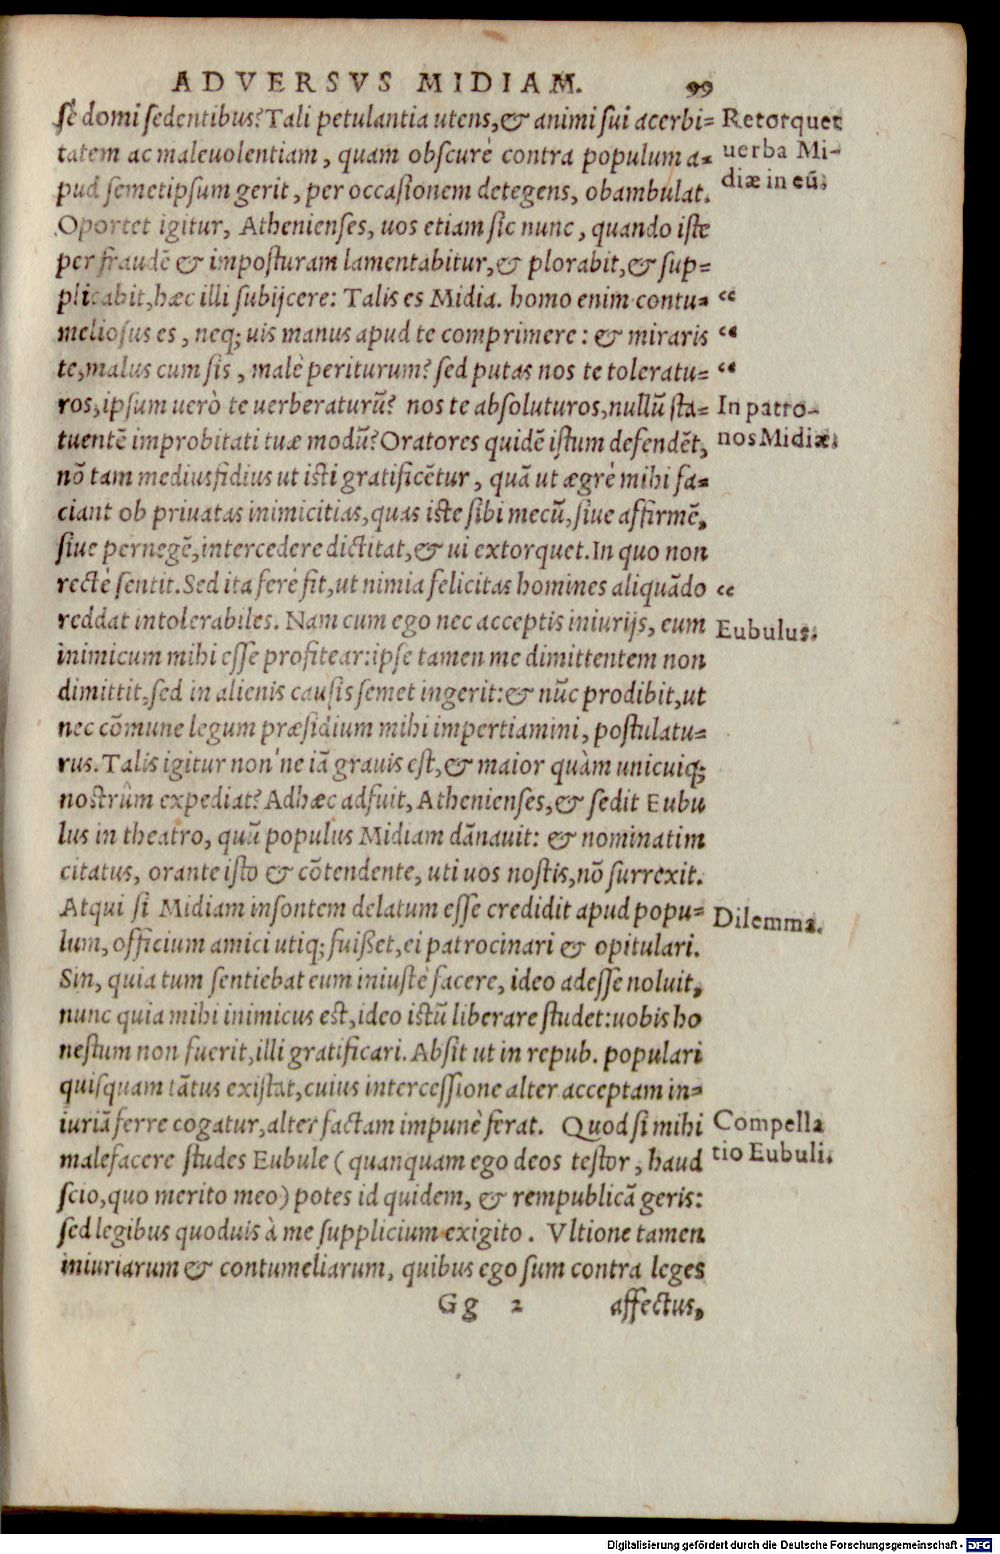 ADVERSVS MIDIAM. 99
se domi sedentibus? Tali petulantia utens, & animi sui acerbi=
tatem ac maleuolentiam, quam obscurè contra populum a=
pud semetipsum gerit, per occasionem detegens, obambulat.
Oportet igitur, Athenienses, uos etiam sic nunc, quando iste
per fraudē & imposturam lamentabitur, & plorabit, & sup=
plicabit, hæc illi subijcere: Talis es Midia. homo enim contu=
meliosus es, neq; uis manus apud te comprimere: & miraris
te, malus cum sis, malè periturum? sed putas nos te toleratu=
ros, ipsum uerò te uerberaturū? nos te absoluturos, nullū sta=
tuentē improbitati tuæ modū? Oratores quidē istum defendēt,
nō tam mediusfidius ut isti gratificētur, quā ut ægrè mihi fa=
ciant ob priuatas inimicitias, quas iste sibi mecū, siue affirmē,
siue pernegē, intercedere dictitat, & ui extorquet. In quo non
rectè sentit. Sed ita ferè fit, ut nimia felicitas homines aliquādo
reddat intolerabiles. Nam cum ego nec acceptis iniurijs, eum
inimicum mihi esse profitear: ipse tamen me dimittentem non
dimittit, sed in alienis causis semet ingerit: & nūc prodibit, ut
nec cōmune legum præsidium mihi impertiamini, postulatu=
rus. Talis igitur non'ne iā grauis est, & maior quàm unicuiq;
nostrûm expediat? Ad hæc adfuit, Athenienses, & sedit Eubu
lus in theatro, quū populus Midiam dānauit: & nominatim
citatus, orante isto & cōtendente, uti uos nostis, nō surrexit.
Atqui si Midiam insontem delatum esse credidit apud popu=
lum, officium amici utiq; fuißet, ei patrocinari & opitulari.
Sin, quia tum sentiebat eum iniustè facere, ideo adesse noluit,
nunc quia mihi inimicus est, ideo istū liberare studet: uobis ho
nestum non fuerit, illi gratificari. Absit ut in repub. populari
quisquam tātus existat, cuius intercessione alter acceptam in=
iuriā ferre cogatur, alter factam impunè ferat. Quod si mihi
malefacere studes Eubule (quanquam ego deos testor, haud
scio, quo merito meo) potes id quidem, & rempublicā geris:
sed legibus quoduis à me supplicium exigito. Vltione tamen
iniuriarum & contumeliarum, quibus ego sum contra leges
Gg 2 affectus,
Retorquet
uerba Mi-
diæ in eū.
“
“
“
In patro-
nos Midiæ.
“
Eubulus.
Dilemma.
Compella
tio Eubuli.
Digitalisierung gefördert durch die Deutsche Forschungsgemeinschaft - DFG